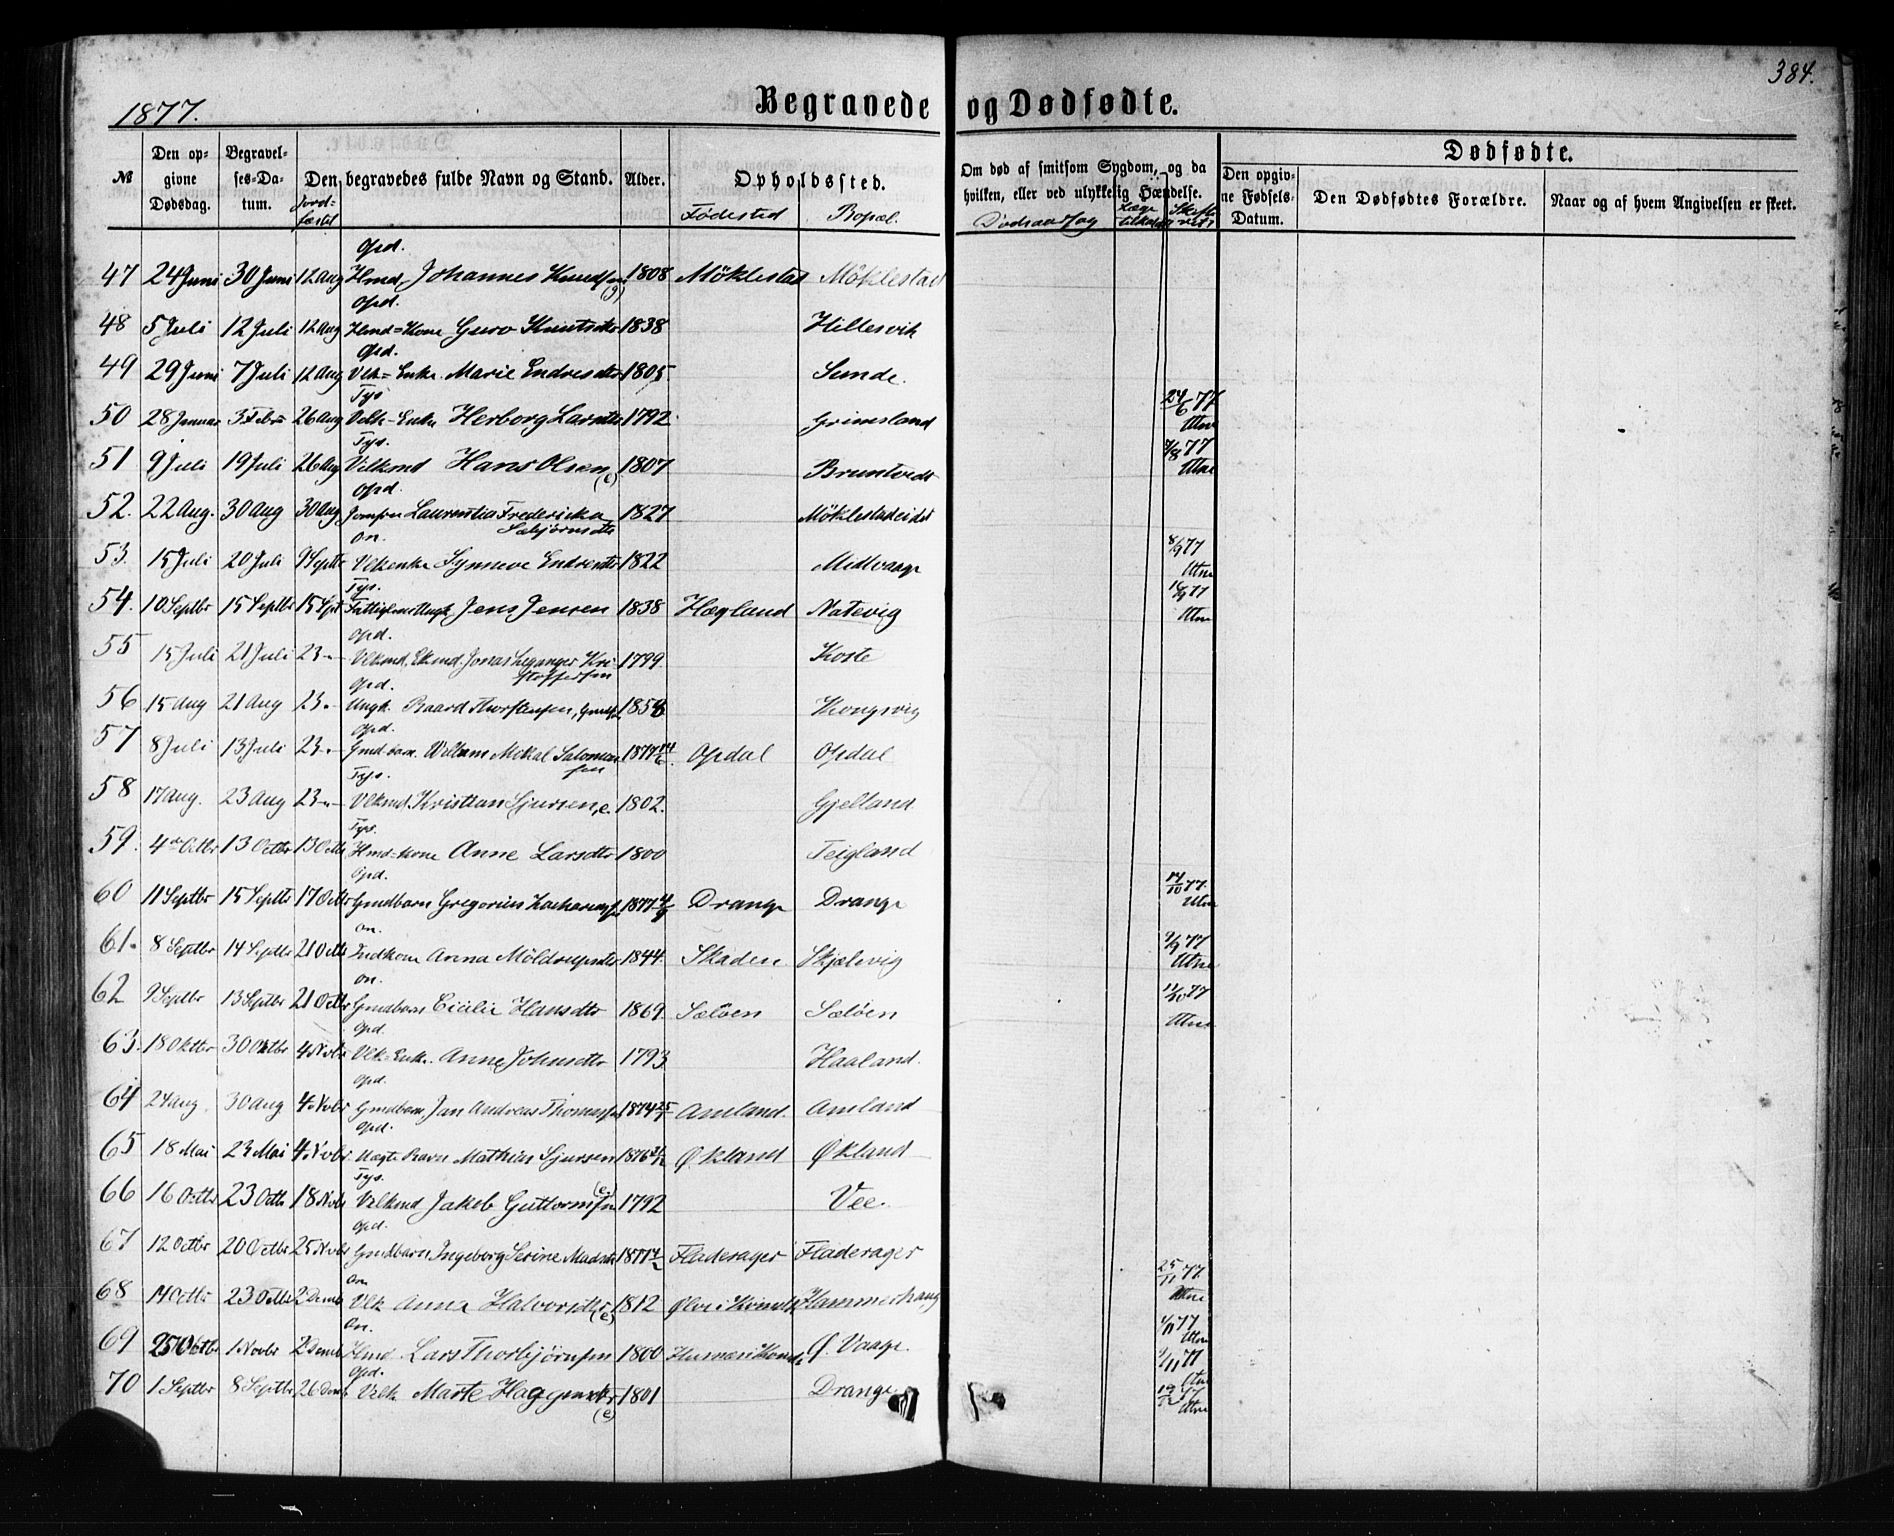 384.
1877.
Begravede og Dødfødte.
Dødfødte.
№
Den opgivne Dødsdag.
Begravelses-Datum.
Jordfæstet
Den begravedes fulde Navn og Stand.
Alder.
Opholdssted.
Fødested
Bopæl.
Om død af smitsom Sygdom, og da hvilken, eller ved ulykkelig Hændelse.
Dødsaarsag
Den opgivne Fødsels-Datum.
Den Dødfødtes Forældre.
Naar og af hvem Angivelsen er skeet.
Opd.
47 24 Juni 30 Juni 12 Aug Hmd. Johannes Knudsen (g) 1808 Møklestad Møklestad
Opd.
48 5 Juli 12 Juli 12 Aug Hmd=Kone Guro Knutsdtr 1838 Hillesvik
Opd.
49 29 Juni 7 Juli 12 Aug Vlk= Enke Marie Endresdtr 1805 Sunde.
Tys
50 28 Januar 3 Febr 26 Aug Velk-Enke Herborg Larsdtr 1792. Grimsland 24/6 77 Utne
Tys.
51 9 Juli 19 Juli 26 Aug Velkmd Hans Olsen (e) 1807 Bruntvedt 7/8 77 Utne
Opd.
52. 22 Aug. 30 Aug 30 Aug Jomfru Laurentia Fredericka Sæbjørnsdtr 1827 Møklestadeidet
On.
53. 15 Juli 20 Juli 9 Septbr Vlkenke Synneve Endresdtr 1822 Midtvaage 8/9 77 Utne
Tys.
54. 10 Septbr 15 Septbr 15 Spt Jens Jensen 1838 Hægland Natevig 16/9 77 Utne
Opd.
55 15 Juli 21 Juli 23 - Vlkmd. Ekmd. Jonas Leganger Kristoffersen 1799. Koste
Opd.
56 15 Aug 21 Aug 23 - Ungk. Baard Thorstensen, Kongsvig
Opd.
57 8 Juli 13 Juli 23 - Gmdbarn. William Mikal Salomonsen 1877 Opdal Opdal
Tys.
58 17 Aug. 23 Aug 23 - Vlkmd. Kristian Sjursen, e. 1802. Gjelland
Tys.
59. 4de Octbr 13 Octbr 13 Octbr Hmd=Kone Anne Larsdtr 1800 Teigland
Opd.
60 11 Septbr 15 Septbr 17 Octbr Gmdbarn Gregorius 1877 4/9 Drange Drange 14/10 77. Utne
On.
61. 8 Septbr 14 Septbr 21 Octbr Anna Möldrupsdtr 1844. Skaden Skjælvig 9/9 77 Utne
On.
62 9 Septbr 13 Septbr 21 Octbr Gmdbarn Cicilie Hansdtr 1869. Sæløen Sæløen 12/10 77 Utne
Opd
63. 18 Oktbr 30 Oktbr 4 Novbr Vlk-Enk. Anne Johnsdtr 1793 Haaland.
Opd.
64 24 Aug. 30 Aug 4. Novbr Gmdbarn, Jan Andreas Thomassen 1874 25/7 Amland. Amland
Opd.
65 18 Mai 23 Mai 4. Novbr. Mathias Sjursen 1876 Økland Økland
Tys.
66 16 Octbr 23 Octbr 18 Novbr Velkmd Jakob Guttormsen (e) 1792 Vee.
Opd.
67 12 Octbr 20 Octbr 25 Novbr Gmdbarn Ingeborg Serine Madsdtr 1877 Fladerager Fladerager
On
68 14 Octbr 23 Octbr 2 Decmb Vlk Anna Halvorsdtr (e) 1812 Ølve i Kvindh. Hammerhaug 25/11 77. Utne
On.
69 25 Oktbr. 1. Novbr 2 Decmb Hmd Lars Thorbjørnsen 1800 Ø. Vaage. 1/11 77 Utne
Opd.
70 1 Septbr 8 Septbr 26 Decmb Velk Marte Haggensdtr (e) 1801 Drange Utne